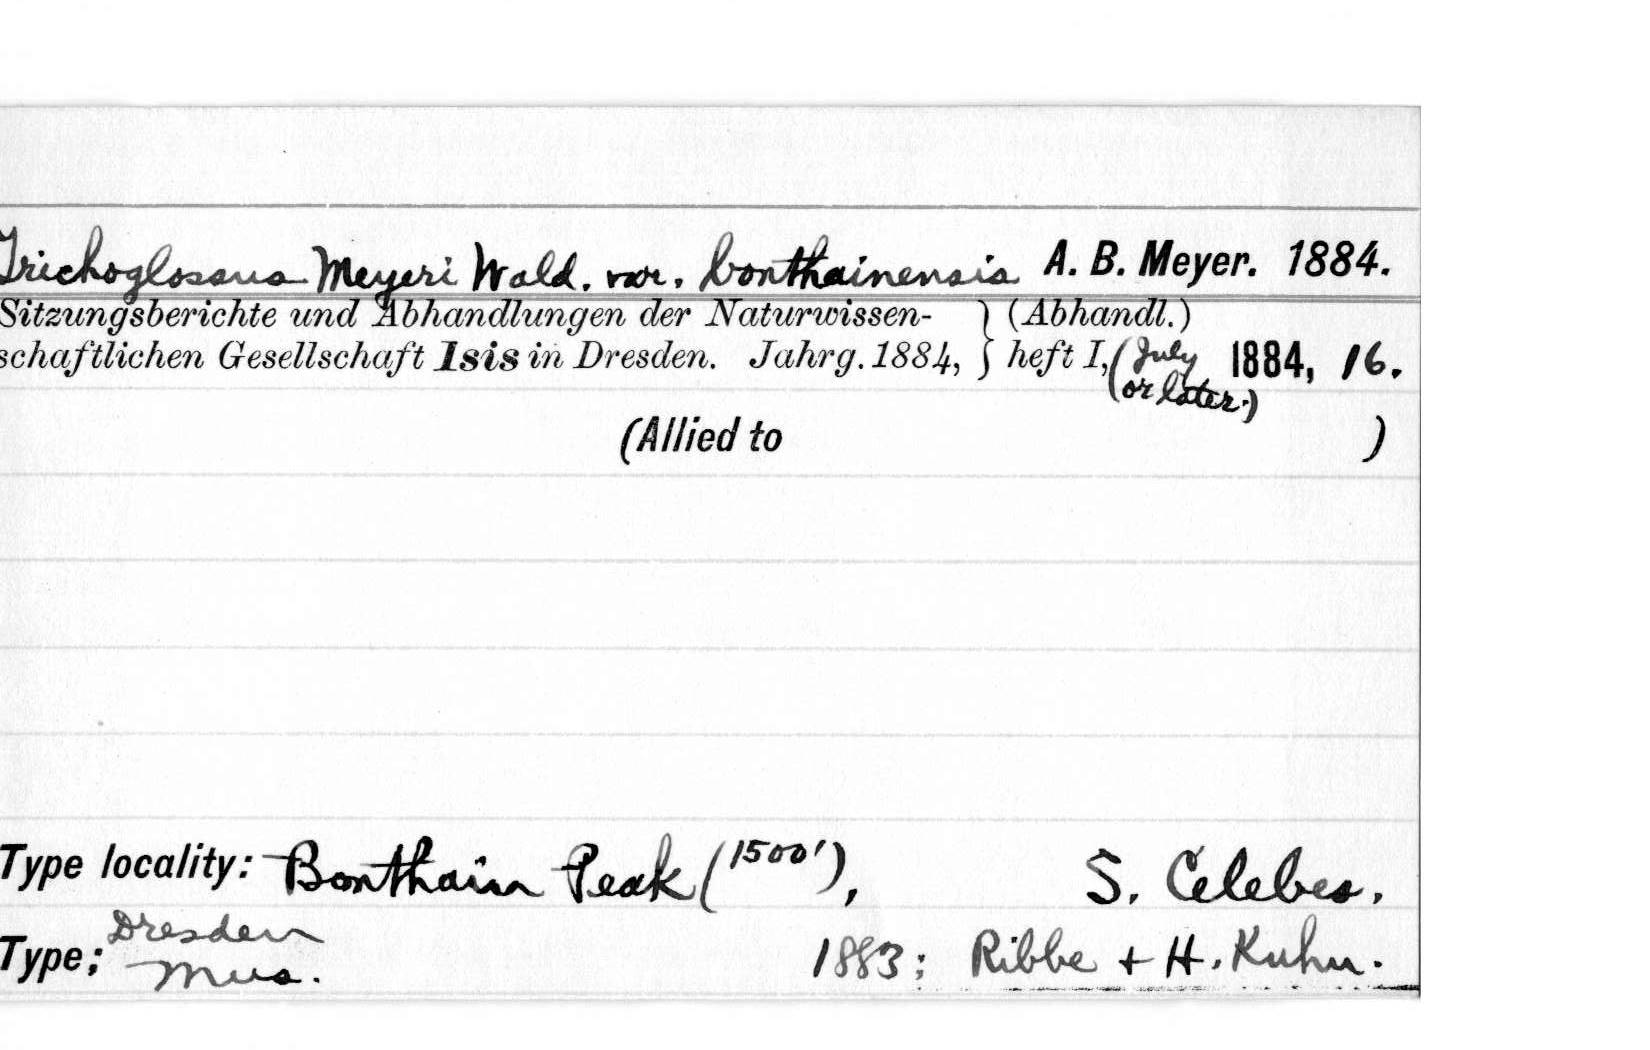 Trichoglossus Meyeri Wald. var. bonthainensis A. B. Meyer. 1884.
Sitzungsberichte und Abhandlungen der Naturwissen- } (Abhandl.)
schaftlichen Gesellschaft Isis in Dresden. Jahrg. 1884, } heft I, (July 1884, 16.
or later.)
(Allied to )
Type locality: Bonthain Peak (1500'), S. Celebes.
Dresden
Type; Mus. 1883; Ribbe + H. Kuhn.